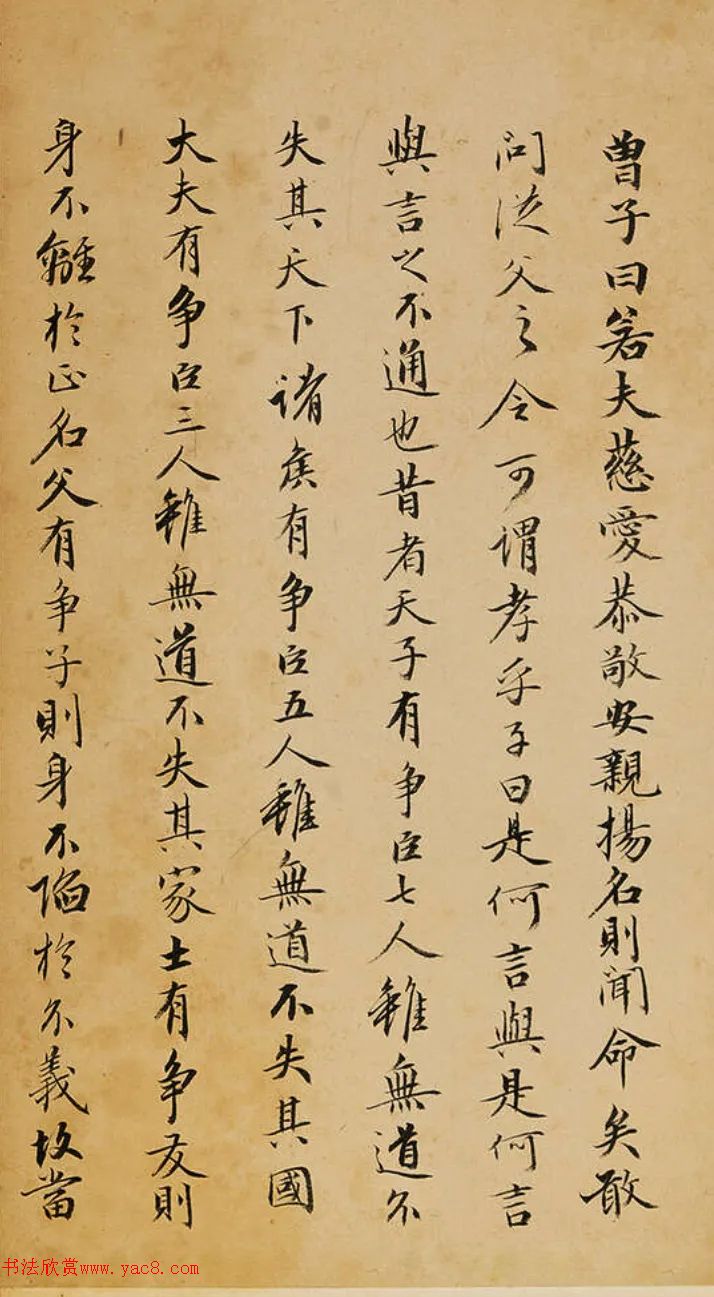 曾子曰若夫慈愛恭敬安親揚名則聞命矣敢
問從父之令可謂孝乎子曰是何言與是何言
與言之不通也昔者天子有争臣七人雖無道不
失其天下諸侯有争臣五人雖無道不失其國
大夫有争臣三人雖無道不失其家士有争友則
身不離於正名父有争子則身不陷於不義故當
书法欣赏www.yac8.com